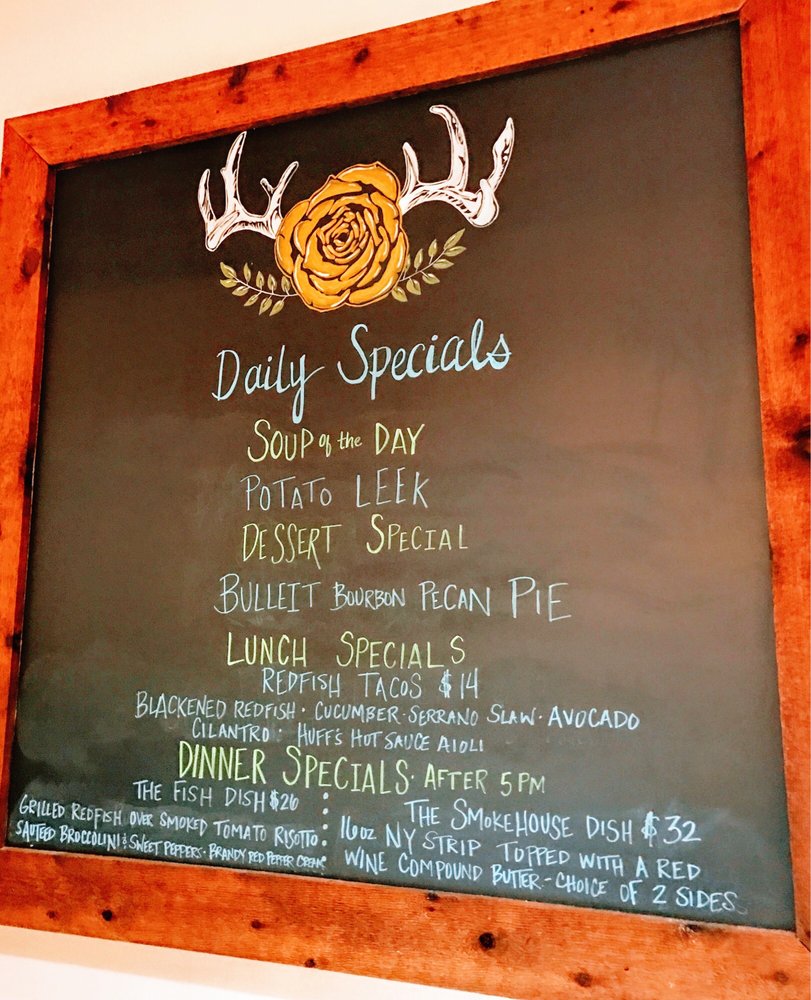 Daily Specials
SOUP of the DAY
POTATO LEEK
DESSERT SPECIAL
BULLEIT BOURBON PECAN PIE
LUNCH SPECIALS
REDFISH TACOS $14
BLACKENED REDFISH · CUCUMBER · SERRANO SLAW · AVOCADO
CILANTRO · HUFF'S HOT SAUCE AIOLI
DINNER SPECIALS · AFTER 5 PM
THE FISH DISH $26
GRILLED REDFISH OVER SMOKED TOMATO RISOTTO
SAUTEED BROCCOLINI & SWEET PEPPERS · BRANDY RED PEPPER CREAM
THE SMOKEHOUSE DISH $32
16 oz NY STRIP TOPPED WITH A RED
WINE COMPOUND BUTTER - CHOICE OF 2 SIDES